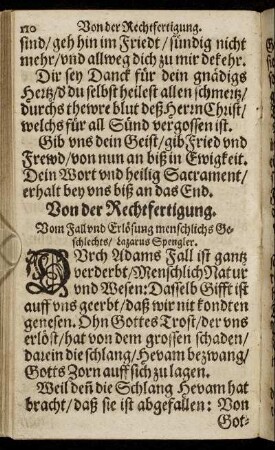 110 Von der Rechtfertigung.
sind/geh hin im Friedt/sündig nicht
mehr/vnd allweg dich zu mir bekehr.
Dir sey Danck für dein gnädigs
Hertz/d du selbst heilest allen schmertz/
durchs thewre blut deß Herrn Christ/
welchs für all Sünd vergossen ist.
Gib vns dein Geist/gib Fried vnd
Frewd/von nun an biß in Ewigkeit.
Dein Wort vnd heilig Sacrament/
erhalt bey vns biß an das End.
Von der Rechtfertigung.
Vom Fall vnd Erlösung menschlichs Ge-
schlechts/Lazarus Spengler.
DVrch Adams Fall ist gantz
verderbt/Menschlich Natur
vnd Wesen: Dasselb Gifft ist
auff vns geerbt/daß wir nit kondten
genesen. Ohn Gottes Trost/der vns
erlöst/hat von dem grossen schaden/
darein die schlang/Hevam bezwang/
Gotts Zorn auff sich zu lagen.
Weil deñ die Schlang Hevam hat
bracht/daß sie ist abgefallen: Von
Got-